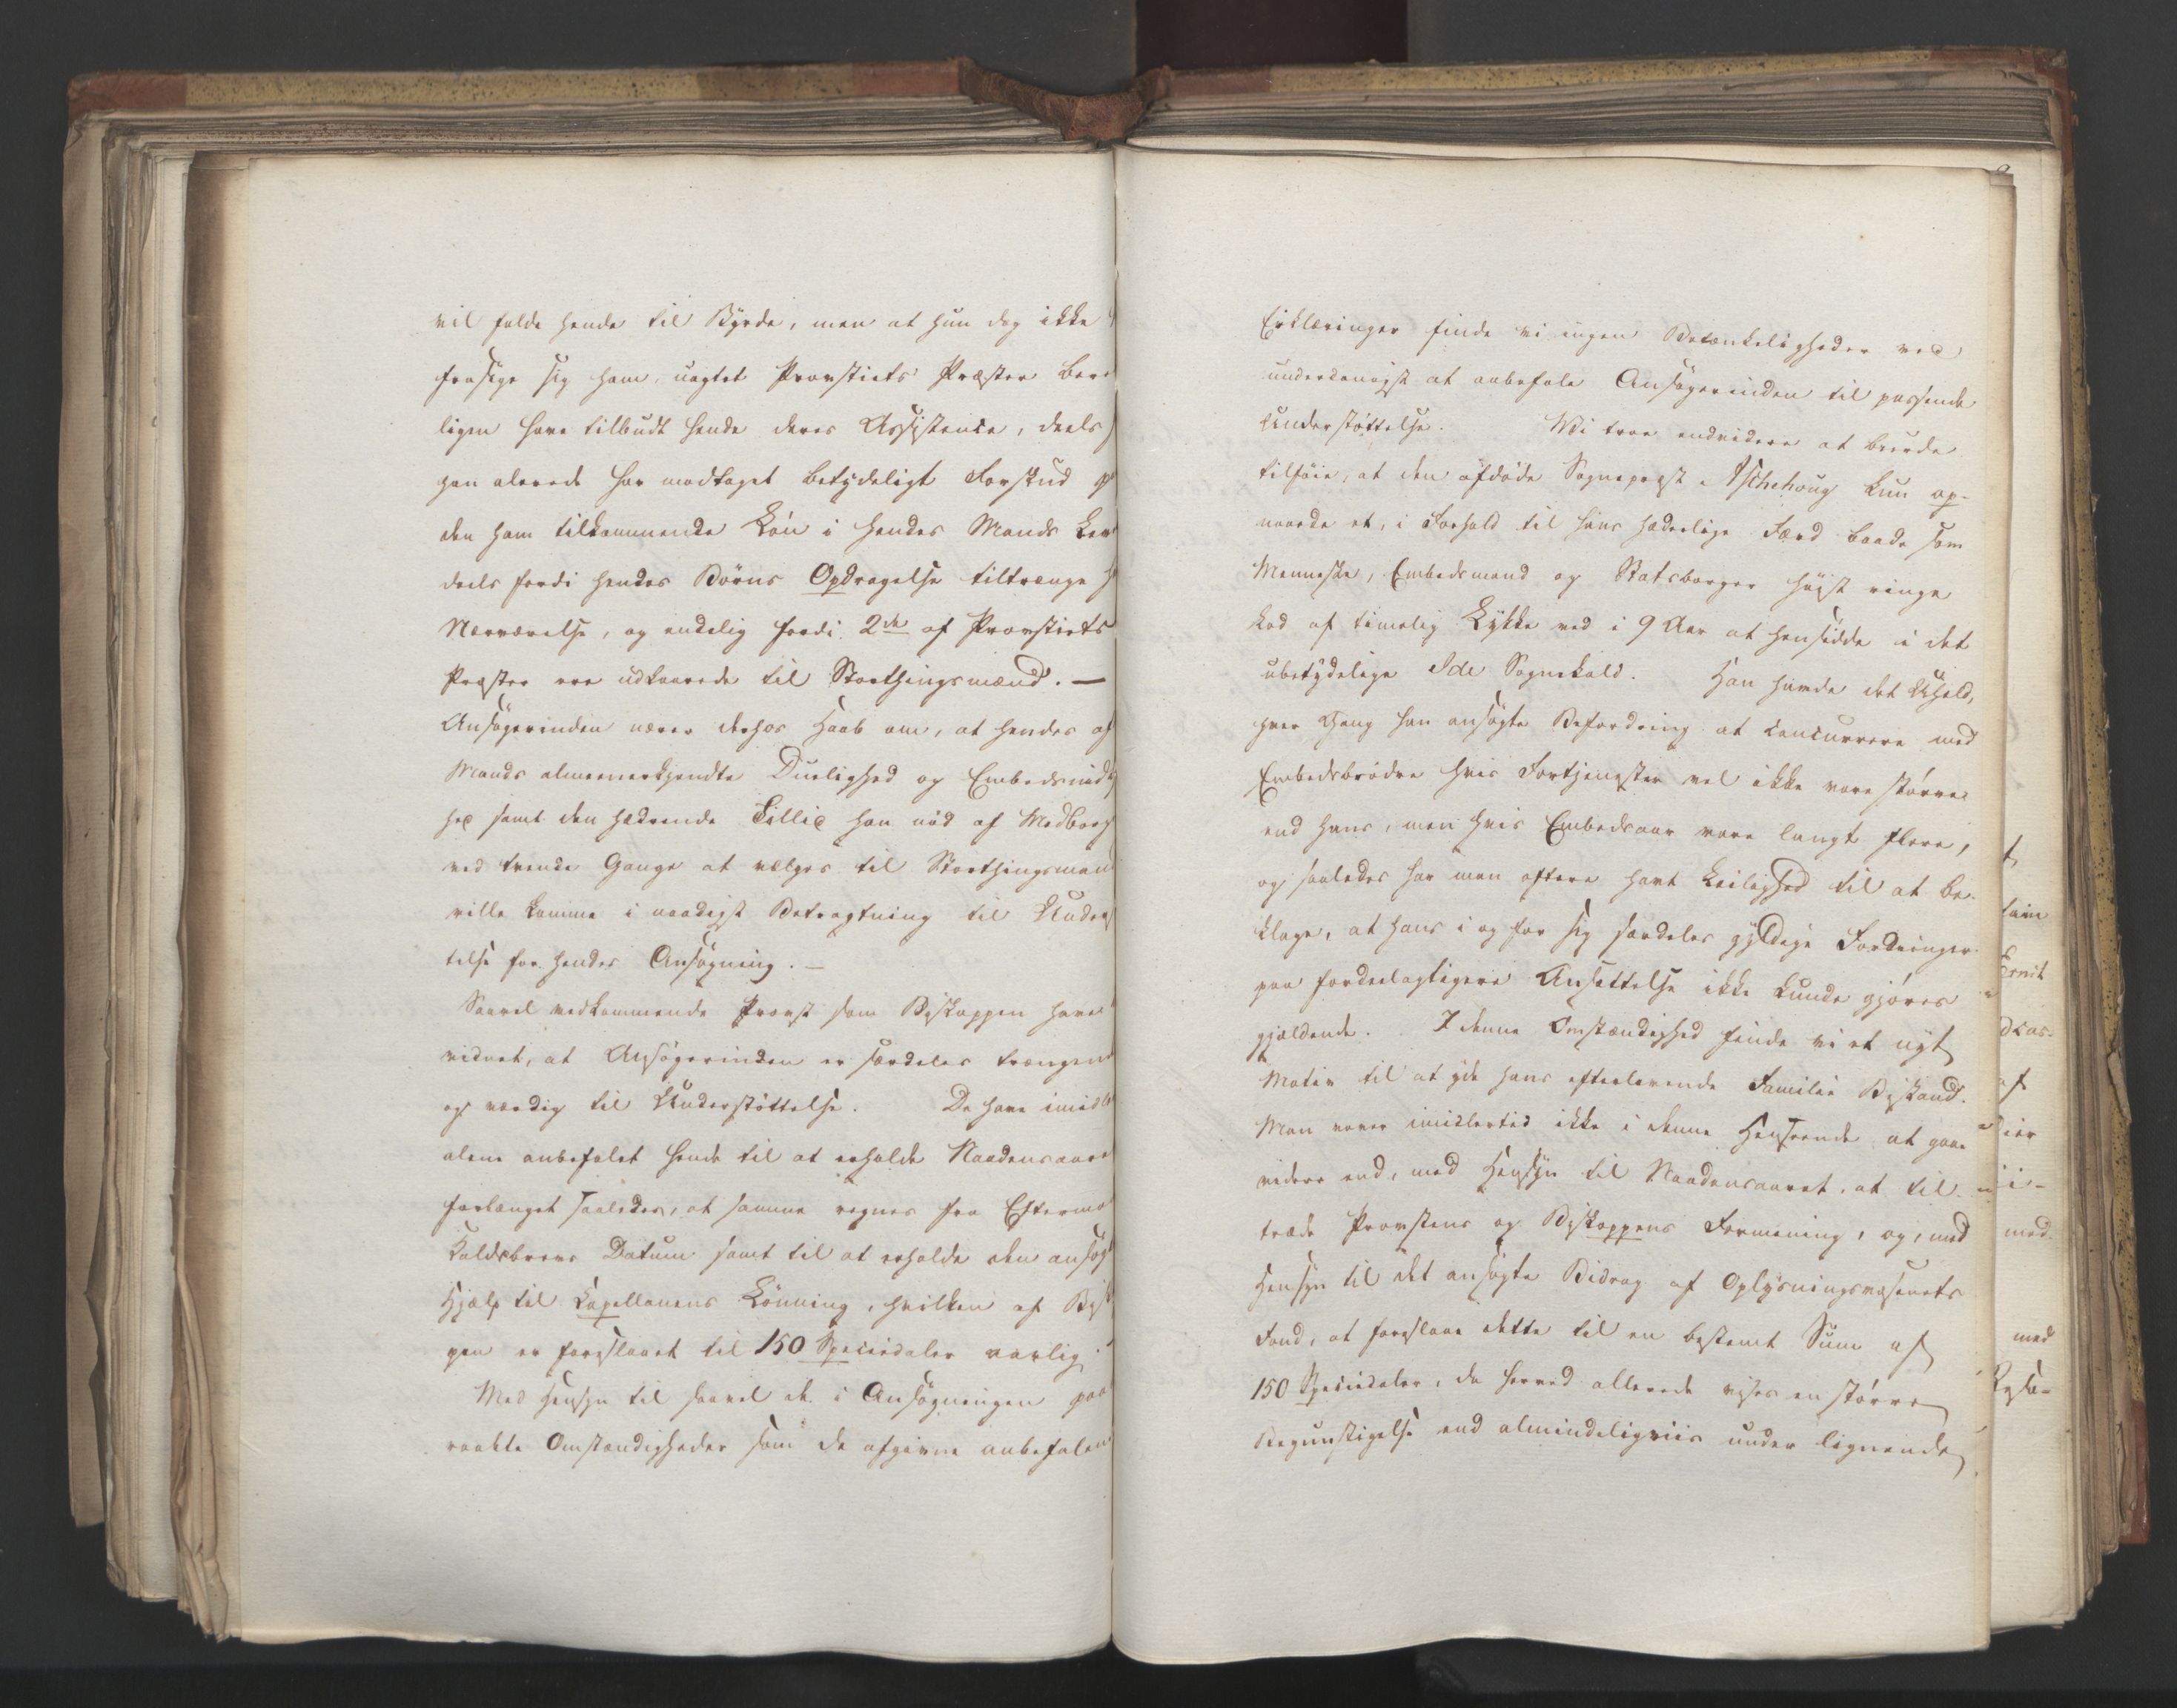 vil falde hende til Byrde, men at hun dog ikke
frasige sig ham, uagtet Provstiets Præster bere
ligen have tilbudt hende deres Assistence, deels
han alerede har modtaget betydeligt Forskud p
den ham tilkommende Løn i hendes Mands Lev
deels fordi hendes Börns Opdragelse tiltrænge h
Nærværelse, og endelig fordi 2de af Provstiets
Præster ere udkaarede til Storthingsmænd. —
Ansögerinden nærer derhos Haab om, at hendes af
Mands almeenerkjendte Duelighed og Embedsnid
hed samt den hædrende Tillid han nöd af Medborg
ved trende Gange at vælges til Storthingsmand
ville komme i naadigst Betragtning til Under
telse for hendes Ansøgning. —
Saavel vedkommende Provst som Biskoppen have
vidnet, at Ansögerinden er særdeles trængen
og værdig til Understöttelse. De have imidle
alene anbefalet hende til at erholde Naadensaare
forlænget saaledes, at samme regnes fra Efterma
Kaldsbrevs Datum samt til at erholde den ansög
Hjælp til Kapellanens Lönning, hvilken af Bis
pen er foreslaaet til 150 Speciedaler aarlig.
Med Hensyn til saavel de i Ansögningen paa
raabte Omstændigheder som de afgivne anbefalen
Erklæringer finde vi ingen Betænkeligheder ved
underdanigst at anbefale Ansögerinden til passende
Understöttelse. Vi troe endvidere at burde
tilföie, at den afdöde Sognepræst Aschehoug kun op-
naaede et, i Forhold til hans hæderlige Færd baade som
Menneske, Embedsmand og Statsborger höist ringe
Lod af timelig Lykke ved i 9 Aar at hensidde i det
ubetydelige Idde Sognekald. Han havde det Uheld,
hver Gang han ansögte Befordring at concurrere med
Embedsbrödre hvis Fortjenester vel ikke vare större
end hans, men hvis Embedsaar vare langt flere,
og saaledes har man oftere havt Leilighed til at be-
klage, at hans i og for sig særdeles gyldige Fordringer
paa fordeelagtigere Ansættelse ikke kunde gjöres
gjældende. I denne Omstændighed finde vi et nyt
Motiv til at yde hans efterlevende Familie Bistand.
Man vover imidlertid ikke i denne Henseende at gaae
videre end, med Hensyn til Naadensaaret, at til-
træde Provstens og Biskoppens Formening, og, med
Hensyn til det ansøgte Bidrag af Oplysningsvæsenets
Fond, at foreslaae dette til en bestemt Sum af
150 Speciedaler, da herved allerede vises en större
Begunstigelse end almindeligviis under lignende